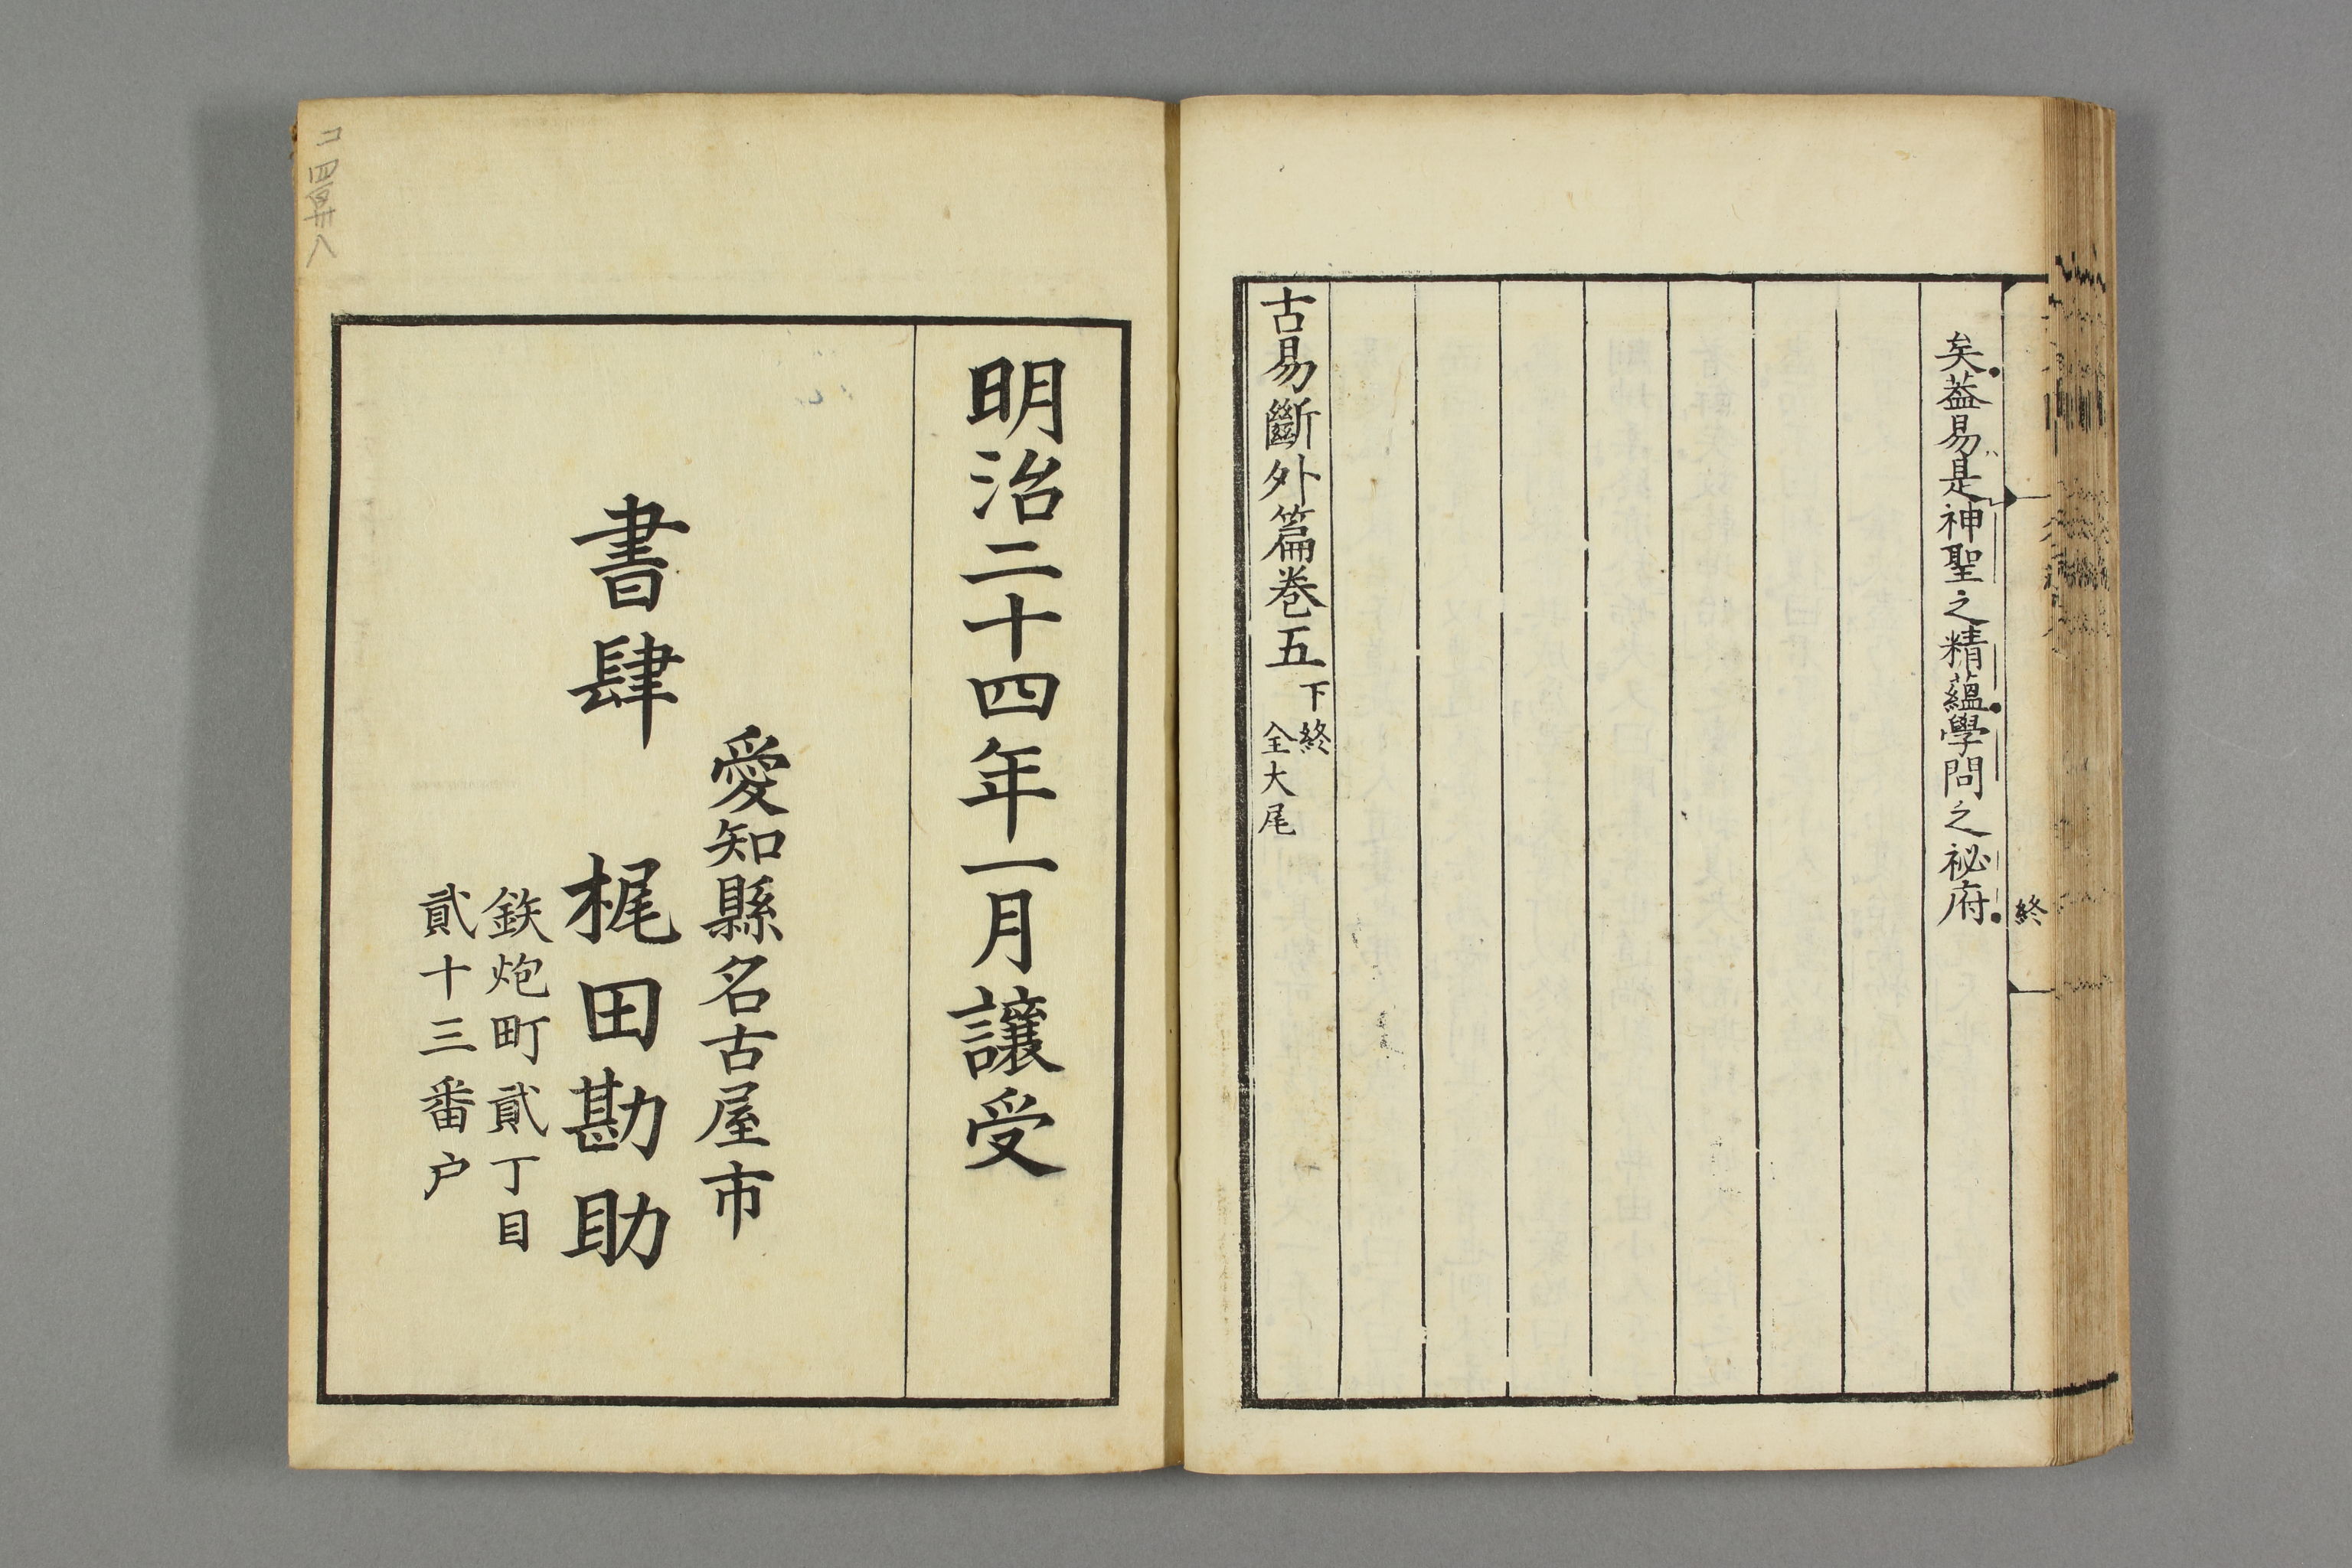 矣蓋易是神聖之精蘊學問之祕府
終
古易斷外篇卷五
下終
全大尾
明治二十四年一月讓受
愛知縣名古屋市
書肆 梶田勘助
鉄炮町貳丁目
貳十三番户